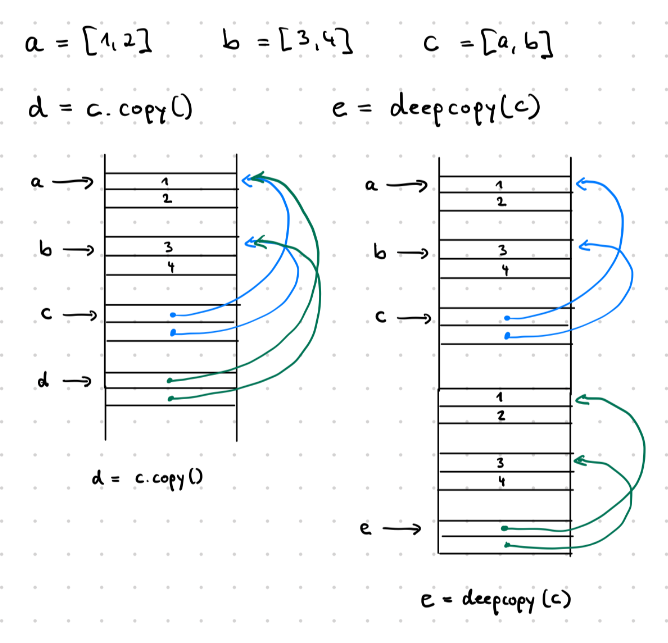 a = [1,2] b = [3,4] c = [a,b]
d = c.copy() e = deepcopy(c)
a
1
2
b
3
4
c
d
d = c.copy()
a
1
2
b
3
4
c
1
2
3
4
e
e = deepcopy(c)